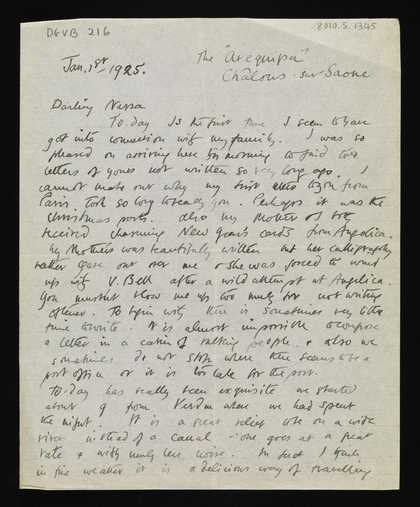 DGVB 216
8010.5.1345
Jan. 1st 1925.
The "Arequipa"
Châlons-sur-Saône
Darling Nessa
To-day is the first time I seem to have
got into connection with my family. I was so
pleased on arriving here this morning to find two
letters of yours not written so very long ago. I
cannot make out why my first letter to you from
Paris took so long to reach you. Perhaps it was the
Christmas posts. Also my Mother & I both
received charming New Years cards from Angelica.
My Mothers was beautifully written but her calligraphy
rather gave out over me & she was forced to wind
up with V. Bell after a wild attempt at Angelica.
You mustnt blow me up too much for not writing
oftener. To begin with there is sometimes very little
time to write. It is almost impossible to compose
a letter in a cabin of talking people, & also we
sometimes do not stop where there seems to be a
post office or it is too late for the post.
To-day has really been exquisite we started
about 9 from Verdun where we had spent
the night. It is a great relief to be on a wide
river instead of a canal - one goes at a great
rate & with much less noise. In fact I think
in fine weather it is a delicious way of travelling